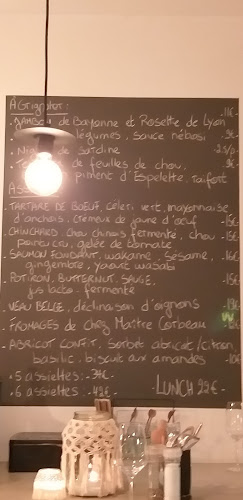 A Grignoter : -11€
. JAMBON de Bayonne et Rosette de Lyon
légumes, sauce nébosi -9€
de Sardine -2.5/p.
de feuilles de chou, -9€
piment d'Espelette, raifort
. TARTARE DE BOEUF, céleri vert, mayonnaise
d'anchois, crémeux de jaune d'oeuf -15€
. CHINCHARD, chou chinois fermenté, chou
poireau cru, gelée de tomate -15€
. SAUMON FONDANT, wakame, sésame, -16€
gingembre, yaourt wasabi
. POTIRON, BUTTERNUT SAUGE, -15€
jus lacto fermenté
. VEAU BELGE, déclinaison d'oignons
. FROMAGES de Chez Maître Corbeau
. ABRICOT CONFIT, Sorbet abricot/citron,
basilic, biscuit aux amandes -10€
* 5 assiettes : -37€-
* 6 assiettes : -42€- -LUNCH 22€-